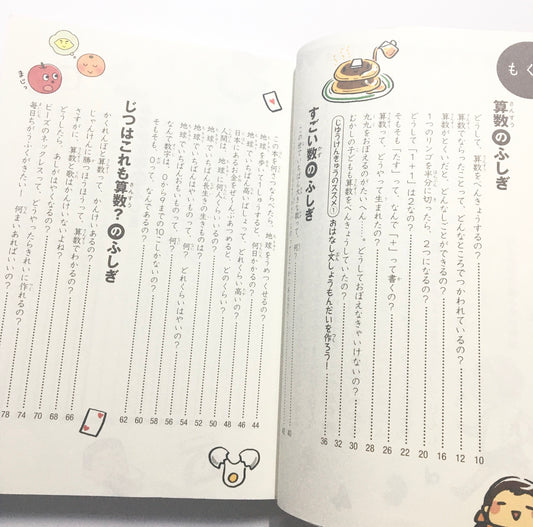 もく
算数のふしぎ
どうして、算数をべんきょうするの？ 10
算数でならったことって、どんなところでつかわれているの？ 12
算数がとくいだと、どんなしごとができるの？ 16
1つのリンゴを半分に切ったら、2つになるの？ 20
どうして「1＋1」は2なの？ 22
そもそも「たす」って、なんで「＋」って書くの？ 26
算数って、どうやって生まれたの？ 28
九九をおぼえるのがたいへん……。どうしておぼえなきゃいけないの？ 30
むかしの子どもも算数をべんきょうしていたの？ 32
じゆうけんきゅうのススメ！ おはなし文しょうもんだいを作ろう！ 36
すごい数のふしぎ
40
この本を何さつならべたら、地球を1しゅうできるの？ 44
地球を歩いて1しゅうすると、何日かかるの？ 46
日本にあるお金をぜんぶあつめると、どれくらい高いの？ 48
人間は、地球に何人くらいいるの？ 50
地球でいちばん長生きの生きものは？ 52
地球でいちばんおもいものって、何？ 54
地球でいちばんはやいものって、何？ どれくらいはやいの？ 56
なんで数字は、0から9までの10こしかないの？ 58
そもそも、0って、なんであるの？ 60
62
じつはこれも算数？のふしぎ
かくれんぼと算数って、かんけいあるの？ 66
じゃんけんに勝つほうほうって、算数でわかるの？ 68
さすがに、算数と歌はかんけいないよね？ 70
どうしたら、あしがはやくなるの？ 74
ビーズのネックレスって、どうやったらきれいに作れるの？
毎日ちがうふくがきたい！ 何まいあればいいの？ 78